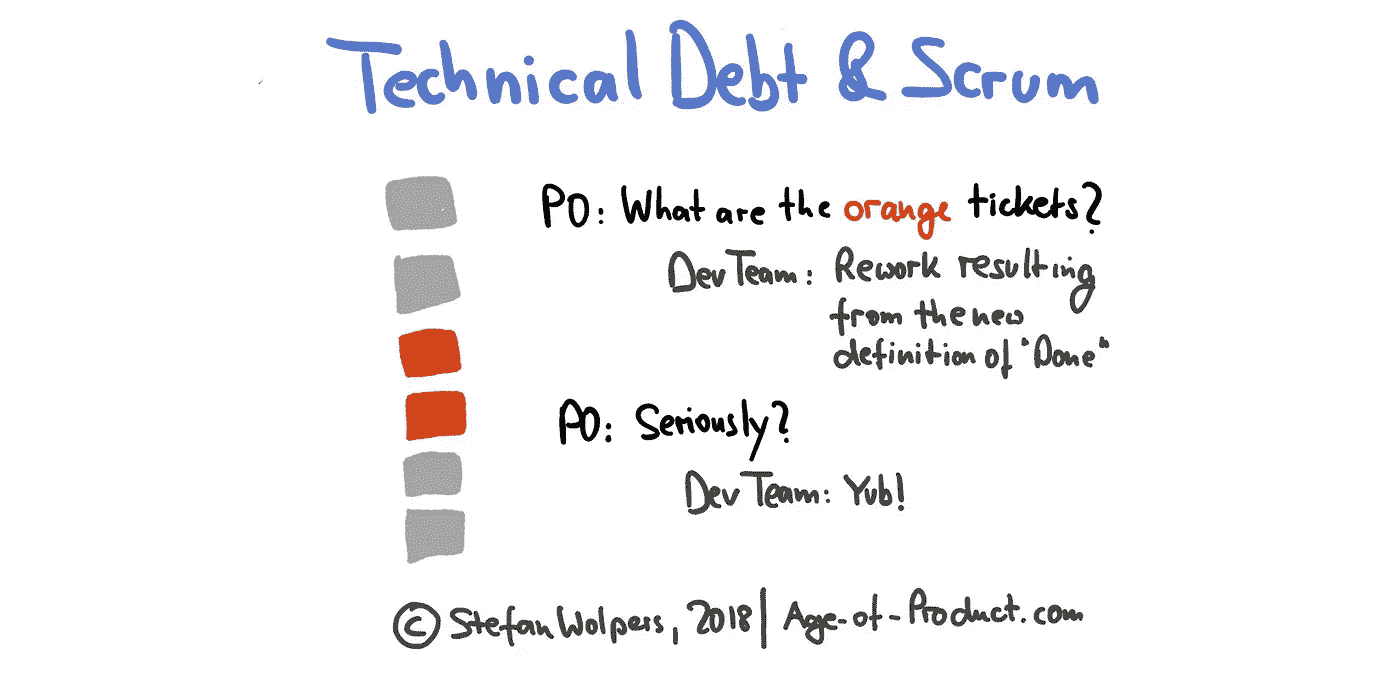 Technical Debt & Scrum
PO: What are the orange tickets?
Dev Team: Rework resulting
from the new
definition of "Done"
PO: Seriously?
Dev Team: Yub!
© Stefan Wolpers, 2018 | Age-of-Product.com